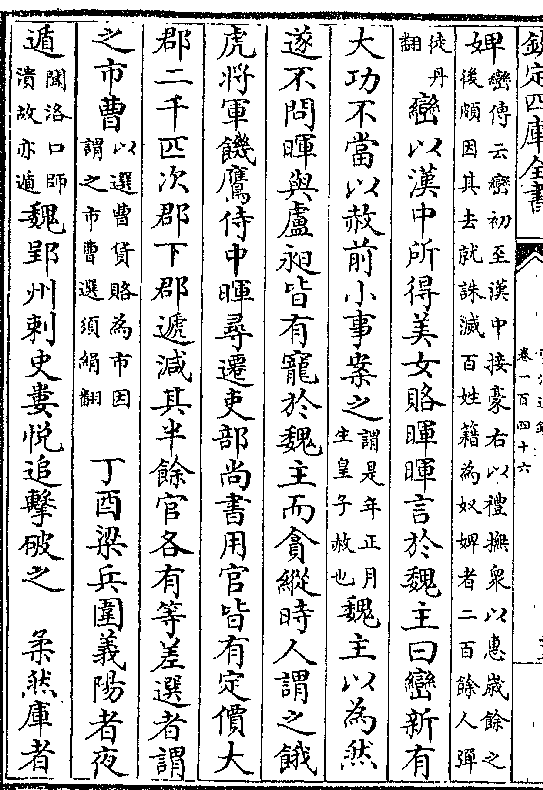 欽定四庫全書
卷一百四十六
婢巒傳云巒初至漢中接豪右以禮撫衆以惠歲餘之
後頗因其去就誅滅百姓籍為奴婢者二百餘人殫
徒丹
翻
巒以漢中所得美女賂暉暉言於魏主曰巒新有
大功不當以赦前小事案之
謂是年正月
主皇子赦也
魏主以為然
遂不問暉與盧昶皆有寵於魏主而貪縱時人謂之餓
虎將軍饑鷹侍中暉尋遷吏部尚書用官皆有定價大
郡二千匹次郡下郡遞減其半餘官各有等差選者謂
之市曹
以選曹貨賂為市因
謂之市曹選須絹翻
丁酉梁兵圍義陽者夜
遁
聞洛口師
潰故亦遁
魏郢州刺史婁悅追擊破之　柔然庫者